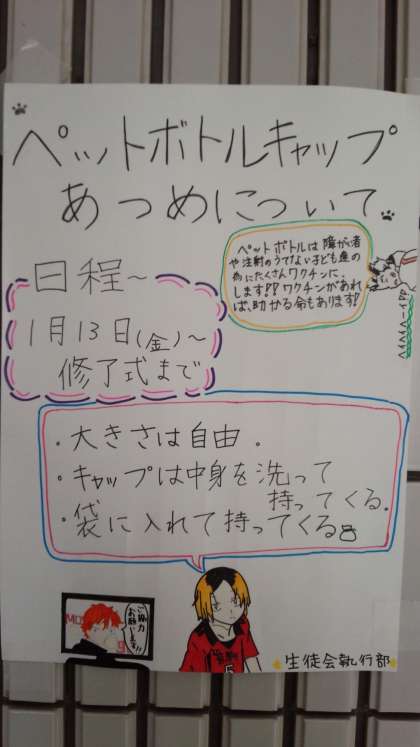 ペットボトルキャップ
あつめについて
日程~
1月13日(金)~
修了式まで
ペットボトルは障がい者
や注射のうてない子ども達の
為にたくさんワクチンに、
します!!ワクチンがあれ
ば、助かる命もあります!
・大きさは自由.
・キャップは中身を洗って
持ってくる.
・袋に入れて持ってくる
ご協力
お願いします!!
5
生徒会執行部